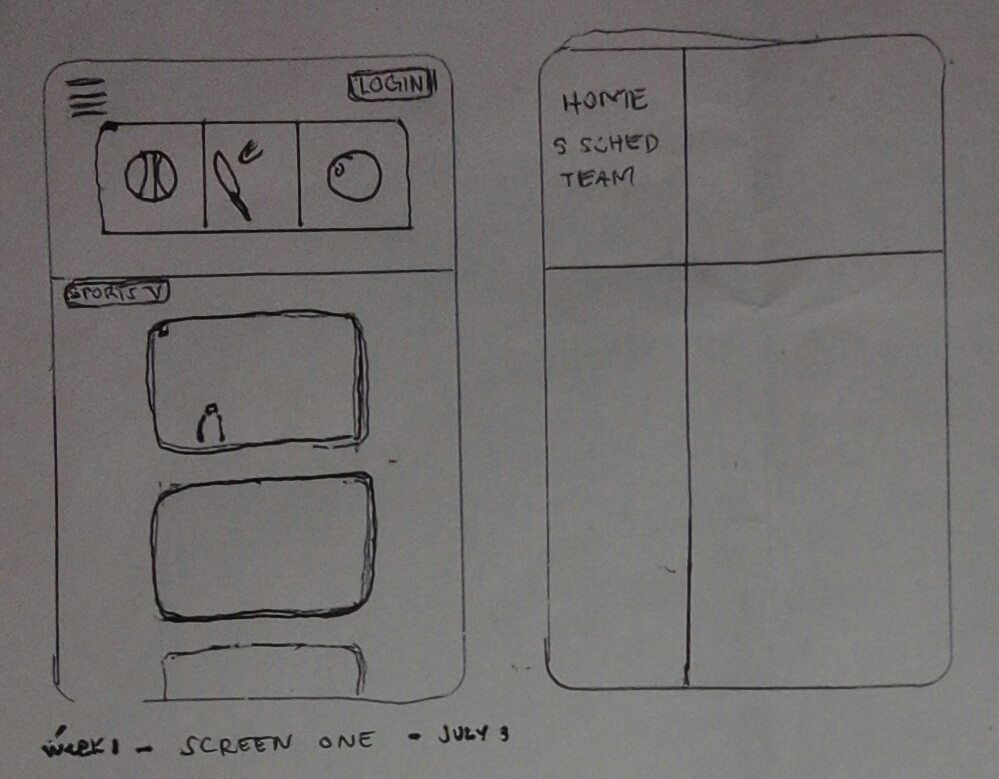 LOGIN
SPORTS V
HOME
S SCHED
TEAM
WEEK 1 - SCREEN ONE - JULY 3